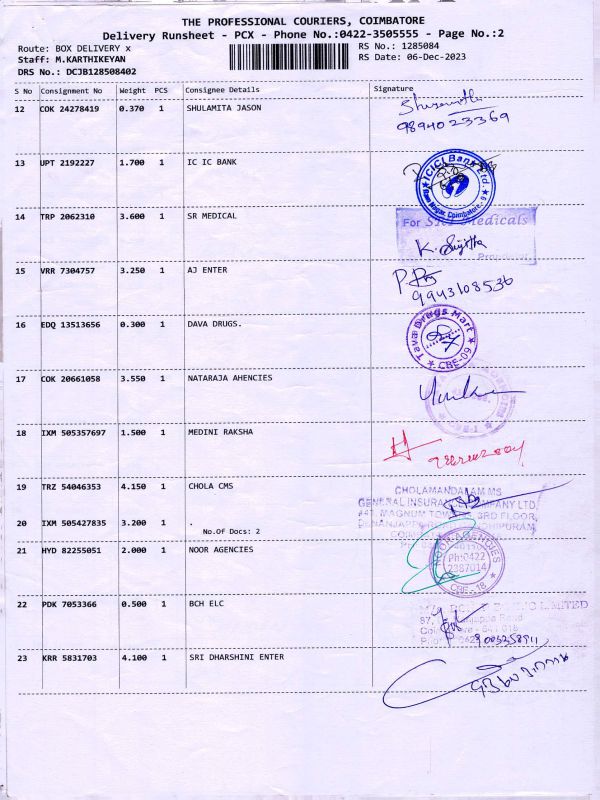 THE PROFESSIONAL COURIERS, COIMBATORE
Delivery Runsheet - PCX - Phone No.:0422-3505555 - Page No.:2
Route: BOX DELIVERY x
RS No.: 1285084
Staff: M.KARTHIKEYAN
RS Date: 06-Dec-2023
DRS No.: DCJB128508402
S No Consignment No Weight PCS Consignee Details Signature
12 COK 24278419 0.370 1 SHULAMITA JASON
9894023369
13 UPT 2192227 1.700 1 IC IC BANK
ICICI Bank Ltd.
Coimbatore - 9
14 TRP 2062310 3.600 1 SR MEDICAL
For SR Medicals
K. Sujitha
15 VRR 7304757 3.250 1 AJ ENTER
9943108536
16 EDQ 13513656 0.300 1 DAVA DRUGS.
Tava Drugs Mart
CBE-09
17 COK 20661058 3.550 1 NATARAJA AHENCIES
18 IXM 505357697 1.500 1 MEDINI RAKSHA
19 TRZ 54046353 4.150 1 CHOLA CMS
CHOLAMANDALAM MS
GENERAL INSURANCE COMPANY LTD,
#41, MAGNUM TOWER, 3RD FLOOR,
20 IXM 505427835 3.200 1 .
No.Of Docs: 2
21 HYD 82255051 2.000 1 NOOR AGENCIES
NOOR AGENCIES
Ph:0422
2387014
CBE-18
22 PDK 7053366 0.500 1 BCH ELC
LIMITED
23 KRR 5831703 4.100 1 SRI DHARSHINI ENTER